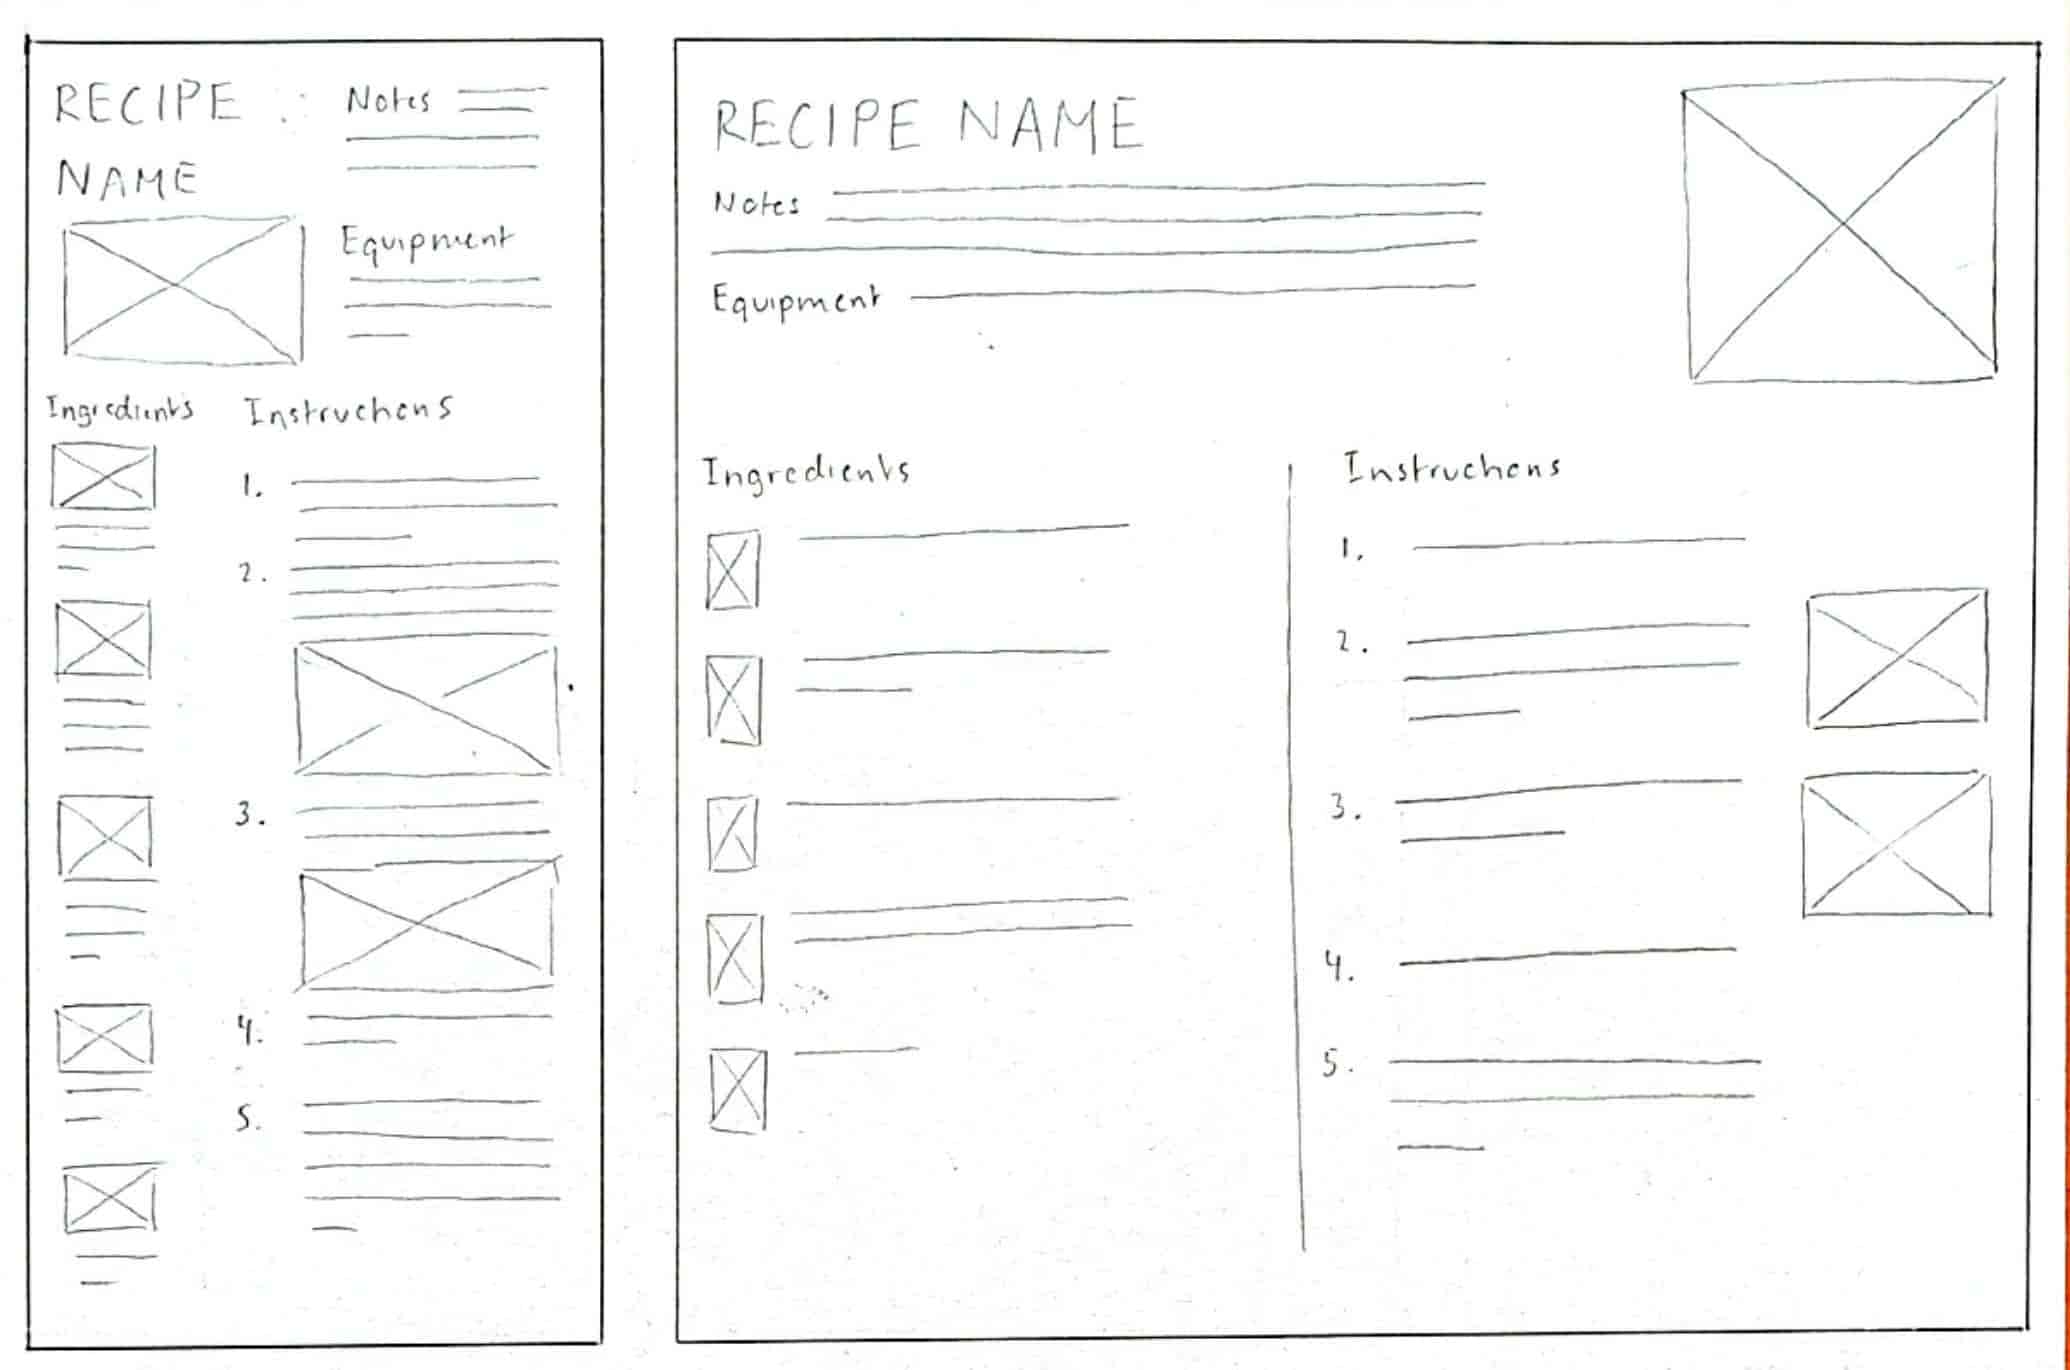 RECIPE
NAME
Notes
Equipment
Ingredients
Instructions
1.
2.
3.
4.
5.
RECIPE NAME
Notes
Equipment
Ingredients
Instructions
1.
2.
3.
4.
5.